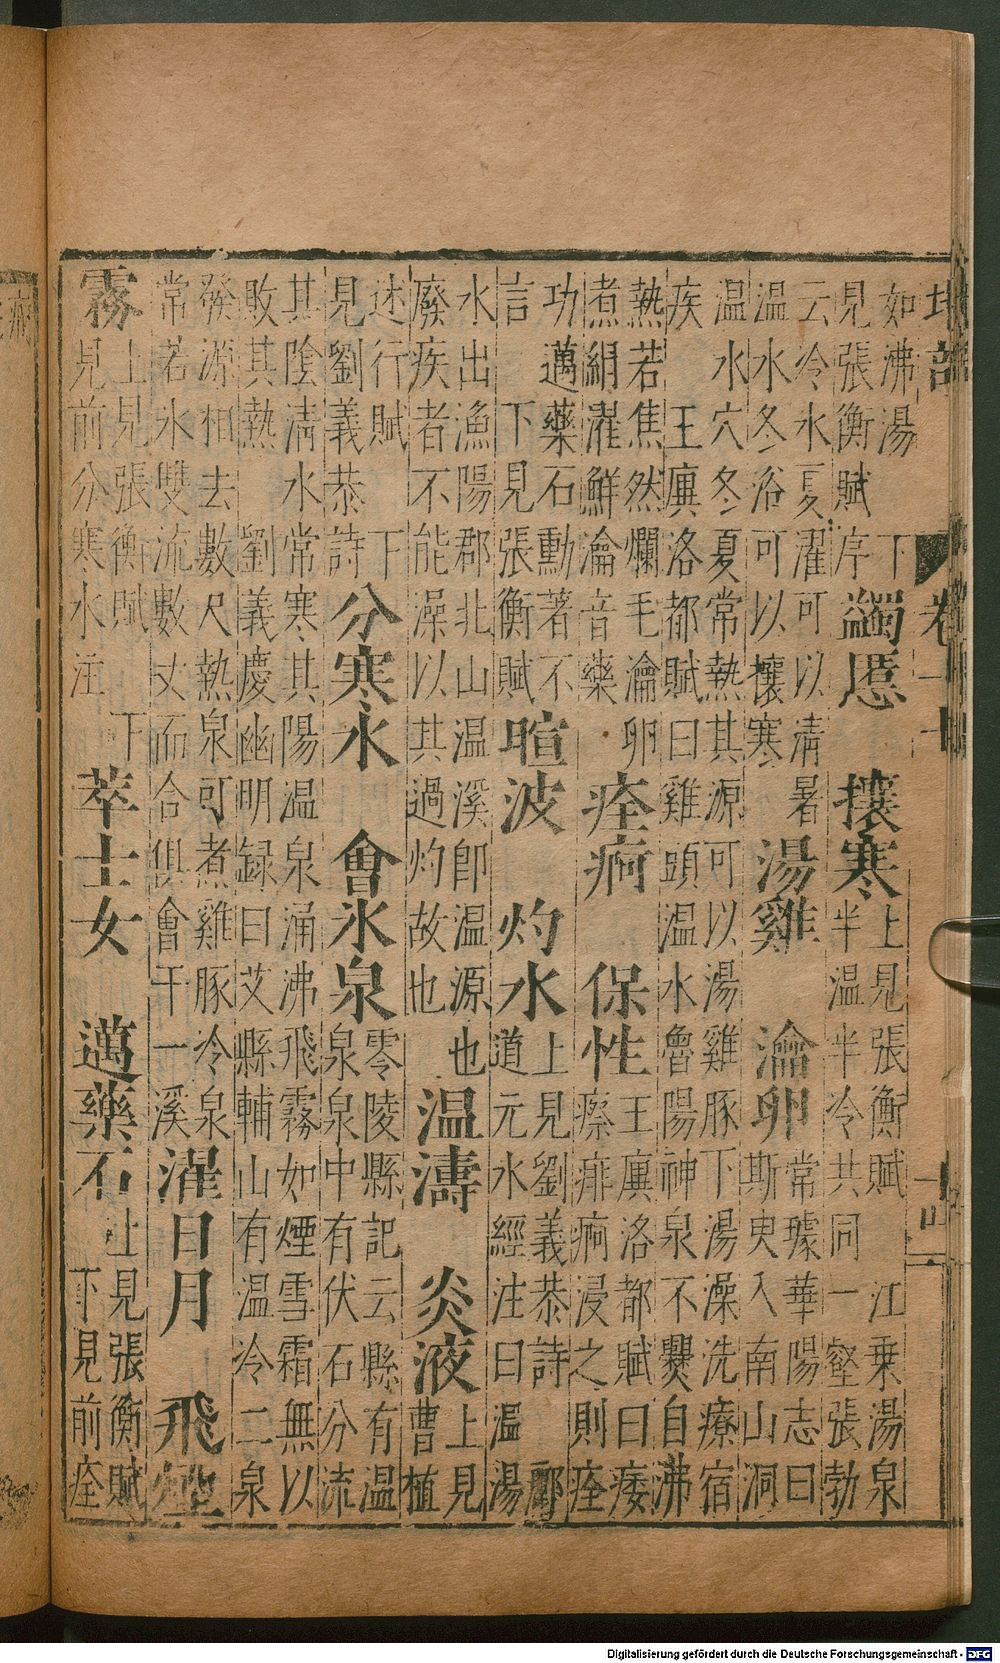 地部
如沸湯 下
見張衡賦序
蠲慝 攘寒
上見張衡賦 江乗湯泉
半温半冷共同一壑張勃
云冷水夏濯可以清暑
温水冬浴可以攘寒
湯雞 瀹卵
常璩華陽志曰
斯臾入南山洞
温水穴冬夏常熱其源可以湯雞豚下湯澡洗療宿
疾 王廙洛都賦曰雞頭温水魯陽神泉不爨自沸
熱若焦然爛毛瀹卵
煮絹濯鮮瀹音藥
痊痾 保性
王廙洛都賦曰痿
瘵痱痾浸之則痊
功邁藥石勳著不
言 下見張衡賦
暄波 灼水
上見劉義恭詩 酈
道元水經注曰温湯
水出漁陽郡北山温溪即温源也
廢疾者不能澡以其過灼故也
温濤 炎液
上見
曹植
述行賦 下
見劉義恭詩
分寒水 會氷泉
零陵縣記云縣有温
泉泉中有伏石分流
其陰清水常寒其陽温泉涌沸飛霧如煙雪霜無以
敗其熱 劉義慶幽明録曰艾縣輔山有温冷二泉
發源相去數尺熱泉可煮雞豚冷泉
常若氷雙流數丈而合俱會于一溪
濯日月 飛煙
霧
上見張衡賦 下
見前分寒水注
萃士女 邁藥石
上見張衡賦
下見前痊
Digitalisierung gefördert durch die Deutsche Forschungsgemeinschaft - DFG